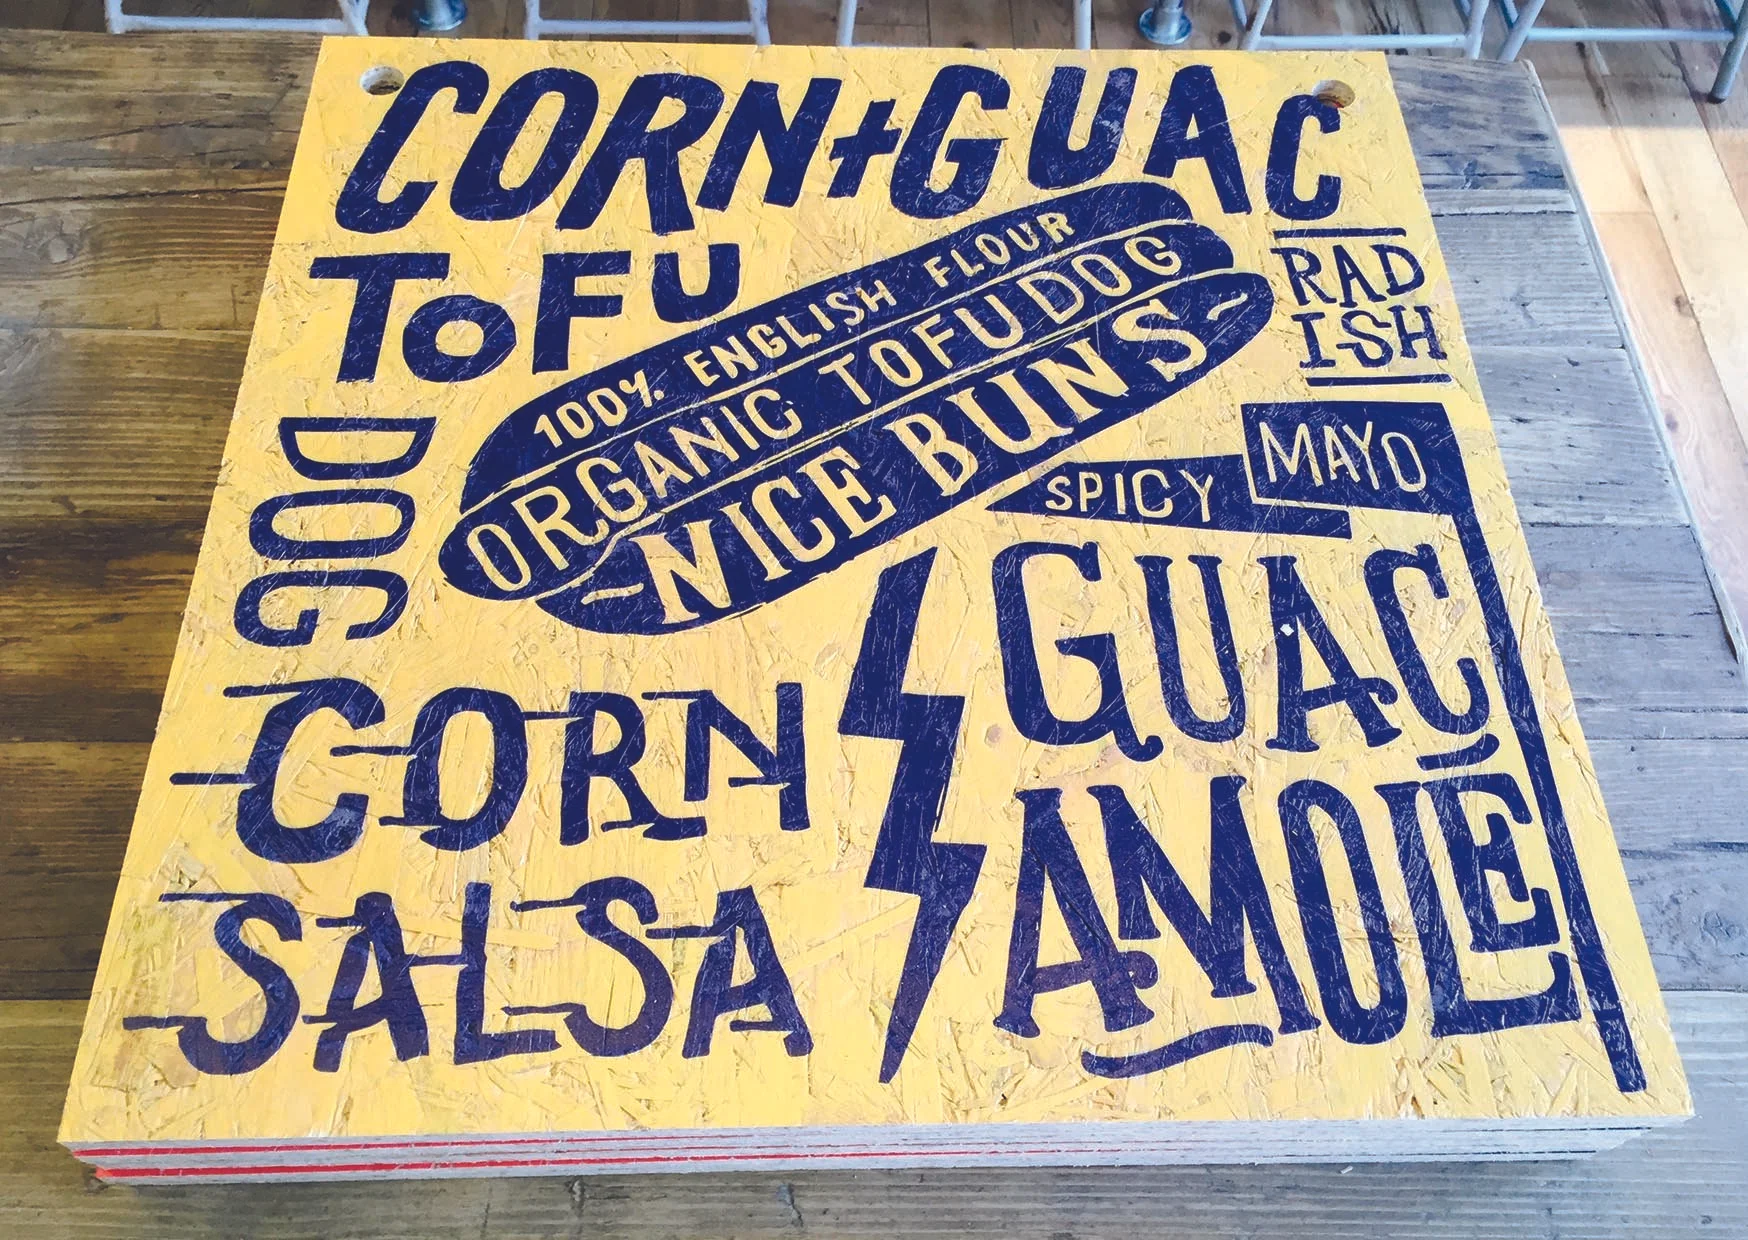 CORN+GUAC
TOFU
DOG
100% ENGLISH FLOUR
ORGANIC TOFU DOG
NICE BUNS
RAD
ISH
SPICY MAYO
CORN
SALSA
GUAC
AMOLE